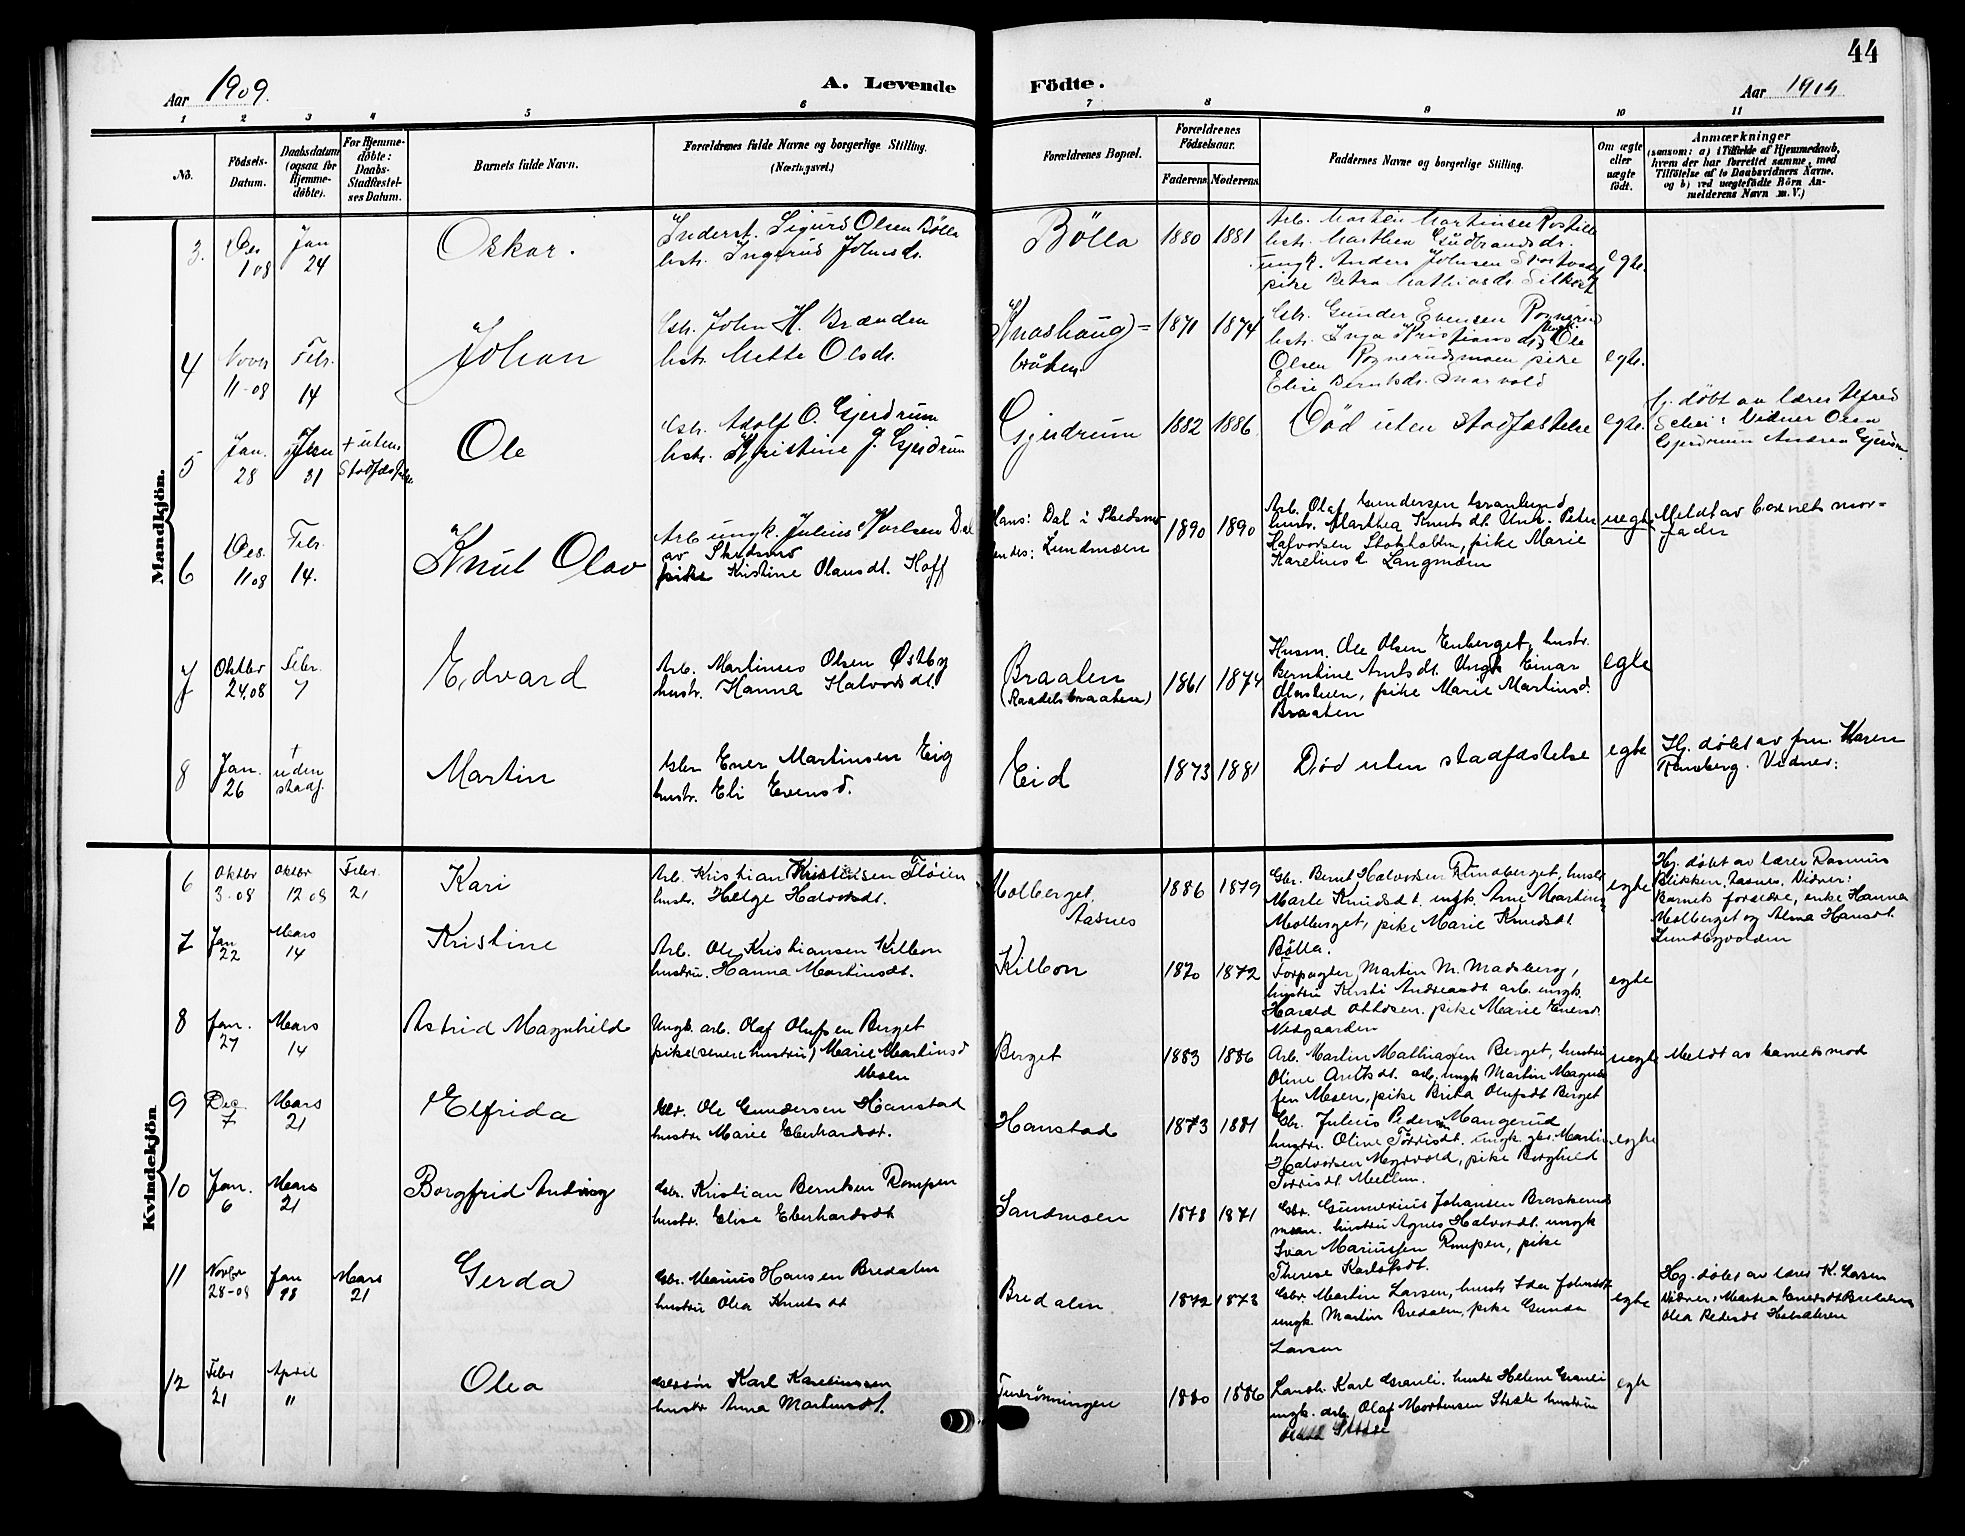 44
Aar 1909.
A. Levende Födte.
Aar
1 2 3 4 5 6 7 8 9 10 11
No.
Födsels-Datum.
Daabsdatum (ogsaa for Hjemmedöbte).
For Hjemmedöbte: Daabs-Stadfæstelses Datum.
Barnets fulde Navn.
Forældrenes fulde Navne og borgerlige Stilling. (Næringsvei.)
Forældrenes Bopæl.
Forældrenes Födselsaar.
Faderens. Moderens.
Faddernes Navne og borgerlige Stilling.
Om ægte eller uægte födt.
Anmærkninger
(saasom: a) i Tilfælde af Hjemmedaab, hvem der har forrettet samme, med Tilföielse af to Daabsvidners Navne, og b) ved uægtefödte Börn Anmelderens Navn m. V.)
Mandkjön.
3. Des 1 08 Jan 24
Oskar.
Inderst. Sigurd Olsen Bölla
hstr. Ingerid Johnsdr.
Bölla
1880 1881
Arb. Morten Martinsen
hstr. Marthea Gudbrandsdr.
ungk. Anders Johnsen
pike Petra Mathiasdr.
egte.
4 Novbr 11-08 Febr. 14
Johan
Gbr. John H. Brænden
hstr. Mette Olsdr.
Knashaug=
bråten
1871 1874
Gbr. Gunder Evensen
hstr. Inga Kristiansdr. Ole
Olsen Rognerudsmoen pike
Elise Berntsdr. Snarvold
egte.
5 Jan. 28 Jan 31 + uten Stadfæstelse
Ole
Gbr. Adolf O. Gjerdrum
hstr. Kristine J. Gjerdrum
Gjerdrum
1882 1886
Död uten stadfæstelse
egte.
hj. döbt av lærer Alfred
Vidner Olea
Gjerdrum Andrea Gjerdrum
6 Des. 11 08 Febr. 14.
Knut Olav
Arb. ungk. Julius Karlsen Dal
av Skedsmo
pike Kristine Olausdt. Hoff
Hans: Dal i Skedsmo
Hendes: Lundmoen
1890 1890
Arb. Olaf Gundersen Granlund
hustr. Marthea Knutsdt. Ung. Peter
Halvorsen Stokholtn, pike Marie
Karelius d. Langmoen
uegte
Meldt av barnets mor-
fader
7 Oktbr 24.08 Febr. 7
Edvard
Arb. Martinus Olsen Østby
hustr. Hanna Halvorsdt.
Braaten
(Raadelsbraaten)
1861 1874
Husm. Ole Olsen Enberget, hustr.
Berntine Arntsdt. Ungk Einar
pike Marie Martinsd.
Braaten
egte
8 Jan. 26 + uden stadf.
Martin
Gbr Ener Martinsen Eig
hustr. Eli Evensd.
Eid
1873 1881
Død uten stadfæstelse
egte
Hj. døbt av fru Karen
Ramberg. Vidner:
Kvindekjön
6 Oktbr 3.08 Oktbr 12 08 Febr. 21
Kari
Arb. Kristian Kristiansen Fløien
hustr. Helge Halvorsdt.
Molberget,
Aasnes
1886 1879
Gbr. Bernt Halvorsen Rundberget, hustr
Marte Knudsdt. ungk. Arne Martinsen
Molberget, pike Marie Knudsdt
Bölla.
egte
Hj. døbt av lærer Rasmus
Blikken, Aasnes. Vidner:
Barnets forældre, enke Hanna
Molberget og Alma Hansdt.
Lundbyvolden
7 Jan 22 Mars 14
Kristine
Arb. Ole Kristiansen Kilbon
hustru. Hanna Martinsdt.
Kilbon
1870 1872
Forpagter Martin M. Madsberg,
hustru Kersti Andreasdt arb. ungk.
Harald Ottosen. pike Marie Enersd.
Nedgaarden
egte
8 Jan. 27 Mars 14
Astrid Magnhild
Ungk. arb. Olaf Olufsen Berget
pike (senere hustru) Marie Martinsd
Moen
Berget
1883 1886
Arb. Martin Mathiassen Berget, hustru
Oline Arntsdt. arb. ungk Martin Magnus
sen Moen, pike Brita Olufsdt Berget
uegte
Meldt av barnets mod
9 Dec 7 Mars 21
Elfrida
Gbr. Ole Gundersen Hanstad
hustr Marie Eberhardsdt.
Hanstad
1873 1881
Gbr. Julius Pedersen Mangerud
hustr. Oline Torrisdt. ungk. gbr. Martin
Halvorsen Myrvold, pike Borghild
Torrisdt Mellem.
egte
10 Jan. 6 Mars 21
Borgfrid Andrag
Gbr. Kristian Berntsen Rompen
hustr. Elise Eberhardsdt
Sandmoen
1878 1871
Gbr. Gunnerius Johansen Braskerud
moen. hustru Agnes Halvordt. ungk
Ivar Mariussen Rompen, pike
Therese Karlsdt.
11 Novbr 28-08 Jan 18 Mars 21
Gerda
Gbr. Marius Hansen Bredalen
hustru Olea Knutsdt
Bredalen
1872 1873
Gbr Martin Larsen, hustr Ida Johnsdt
ungk. Martin Bredalen, pike Gunda
Larsen
egte
Hj. døbt av lærer K. Larsen
Vidner: Martea Enersdt Bredalen
Olea Pedersdt
12 Febr 21 April 11
Olea
Karl Kareliussen
hustr Anna Martinsdt.
1880 1886
Landh. Karl Granli. hustr Helene Granli
ungk. arb. Olaf Mortensen hustru
egte